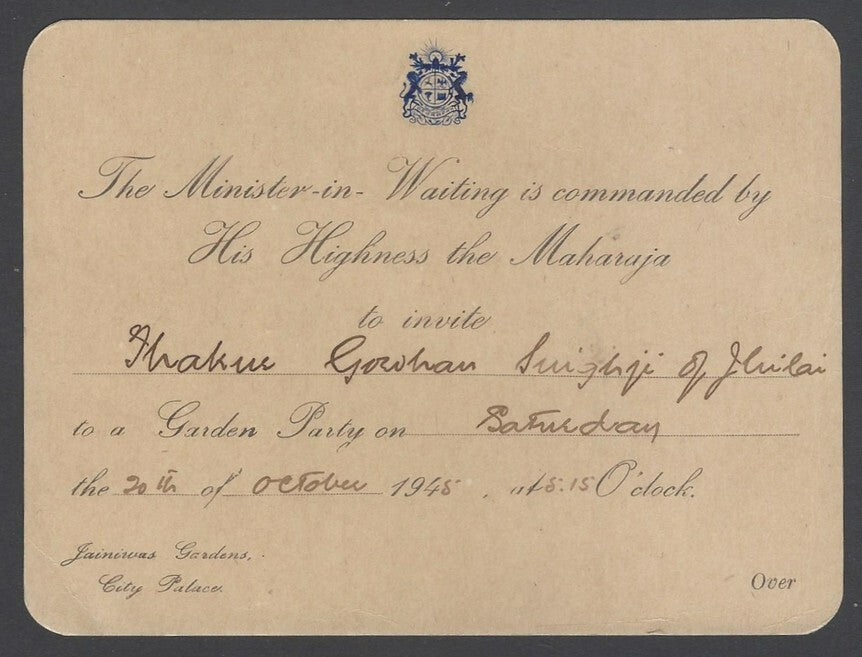 The Minister-in-Waiting is commanded by
His Highness the Maharaja
to invite
Thakur Gordhan Singhji of Jhilai
to a Garden Party on Saturday
the 20th of October 1945, at 5.15 O'clock.
Jainiwas Gardens,
City Palace.
Over